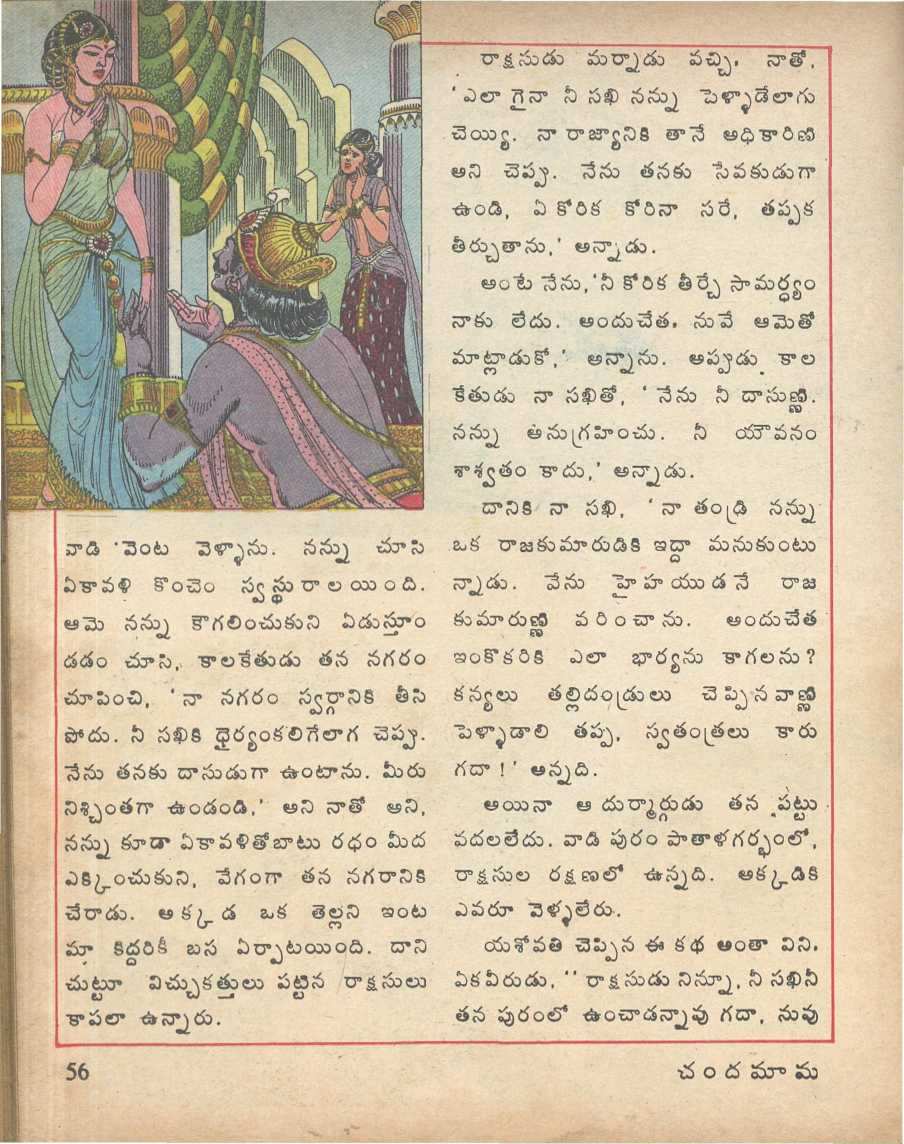 వాడి వెంట వెళ్ళాను. నన్ను చూసి
ఏకావళి కొంచెం స్వస్థురాలయింది.
ఆమె నన్ను కౌగలించుకుని ఏడుస్తూం
డడం చూసి, కాలకేతుడు తన నగరం
చూపించి, 'నా నగరం స్వర్గానికి తీసి
పోదు. నీ సఖికి ధైర్యంకలిగేలాగ చెప్పు.
నేను తనకు దాసుడుగా ఉంటాను. మీరు
నిశ్చింతగా ఉండండి,' అని నాతో అని,
నన్ను కూడా ఏకావళితోబాటు రథం మీద
ఎక్కించుకుని, వేగంగా తన నగరానికి
చేరాడు. అక్కడ ఒక తెల్లని ఇంట
మా కిద్దరికీ బస ఏర్పాటయింది. దాని
చుట్టూ విచ్చుకత్తులు పట్టిన రాక్షసులు
కాపలా ఉన్నారు.
రాక్షసుడు మర్నాడు వచ్చి, నాతో,
'ఎలా గైనా నీ సఖి నన్ను పెళ్ళాడేలాగు
చెయ్యి. నా రాజ్యానికి తానే అధికారిణి
అని చెప్పు. నేను తనకు సేవకుడుగా
ఉండి, ఏ కోరిక కోరినా సరే, తప్పక
తీర్చుతాను,' అన్నాడు.
అంటే నేను, 'నీ కోరిక తీర్చే సామర్థ్యం
నాకు లేదు. అందుచేత, నువే ఆమెతో
మాట్లాడుకో,' అన్నాను. అప్పుడు కాల
కేతుడు నా సఖితో, 'నేను నీ దాసుణ్ణి.
నన్ను అనుగ్రహించు. నీ యౌవనం
శాశ్వతం కాదు,' అన్నాడు.
దానికి నా సఖి, 'నా తండ్రి నన్ను
ఒక రాజకుమారుడికి ఇద్దా మనుకుంటు
న్నాడు. నేను హైహయుడనే రాజ
కుమారుణ్ణి వరించాను. అందుచేత
ఇంకొకరికి ఎలా భార్యను కాగలను?
కన్యలు తల్లిదండ్రులు చెప్పినవాణ్ణి
పెళ్ళాడాలి తప్ప, స్వతంత్రలు కారు
గదా!' అన్నది.
అయినా ఆ దుర్మార్గుడు తన పట్టు
వదలలేదు. వాడి పురం పాతాళగర్భంలో,
రాక్షసుల రక్షణలో ఉన్నది. అక్కడికి
ఎవరూ వెళ్ళలేరు.
యశోవతి చెప్పిన ఈ కథ అంతా విని,
ఏకవీరుడు, "రాక్షసుడు నిన్నూ, నీ సఖినీ
తన పురంలో ఉంచాడన్నావు గదా, నువు
56
చందమామ